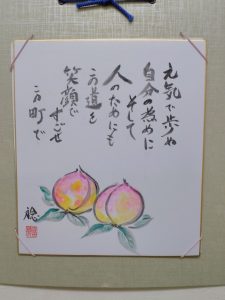 元気で歩や
自分の為めに
そして
人のためにも
この道を
笑顔で
すごせ
この町で